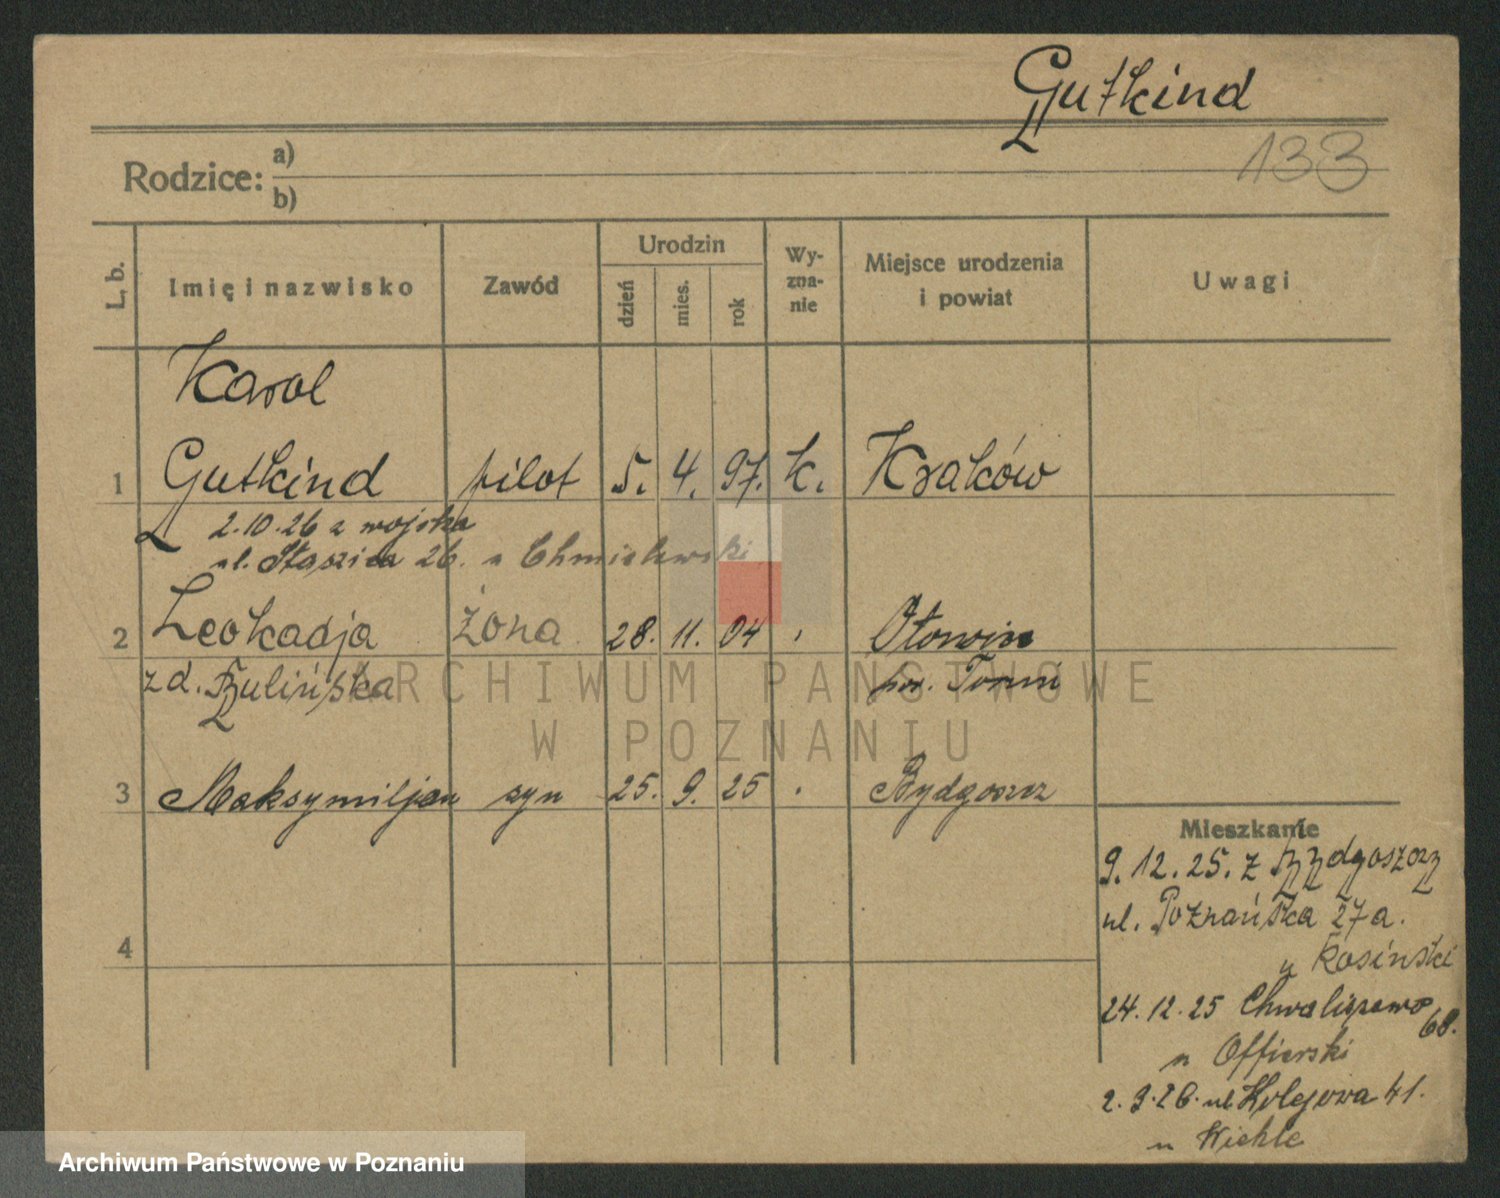 Gutkind
133
Rodzice: a)
b)
L. b.
Imię i nazwisko
Zawód
Urodzin
dzień
mies.
rok
Wy-
zna-
nie
Miejsce urodzenia
i powiat
Uwagi
Karol
1 Gutkind pilot 5. 4. 97. k. Kraków
2.10.26 z wojska
ul. Staszica 26. u Chmielewski
2 Leokadja żona 28. 11. 04 Otowice
z d. Bulińska pow. Toruń
3 Maksymiljan syn 25. 9. 25 Bydgoszcz
Mieszkanie
9.12.25. z Bydgoszczy
ul. Poznańska 27a.
u Kosiński
4
24.12.25 Chwaliszewo 68.
u Offierski
2.9.26. ul Kolejowa 41.
u Kiehle
ARCHIWUM PAŃSTWOWE
W POZNANIU
Archiwum Państwowe w Poznaniu